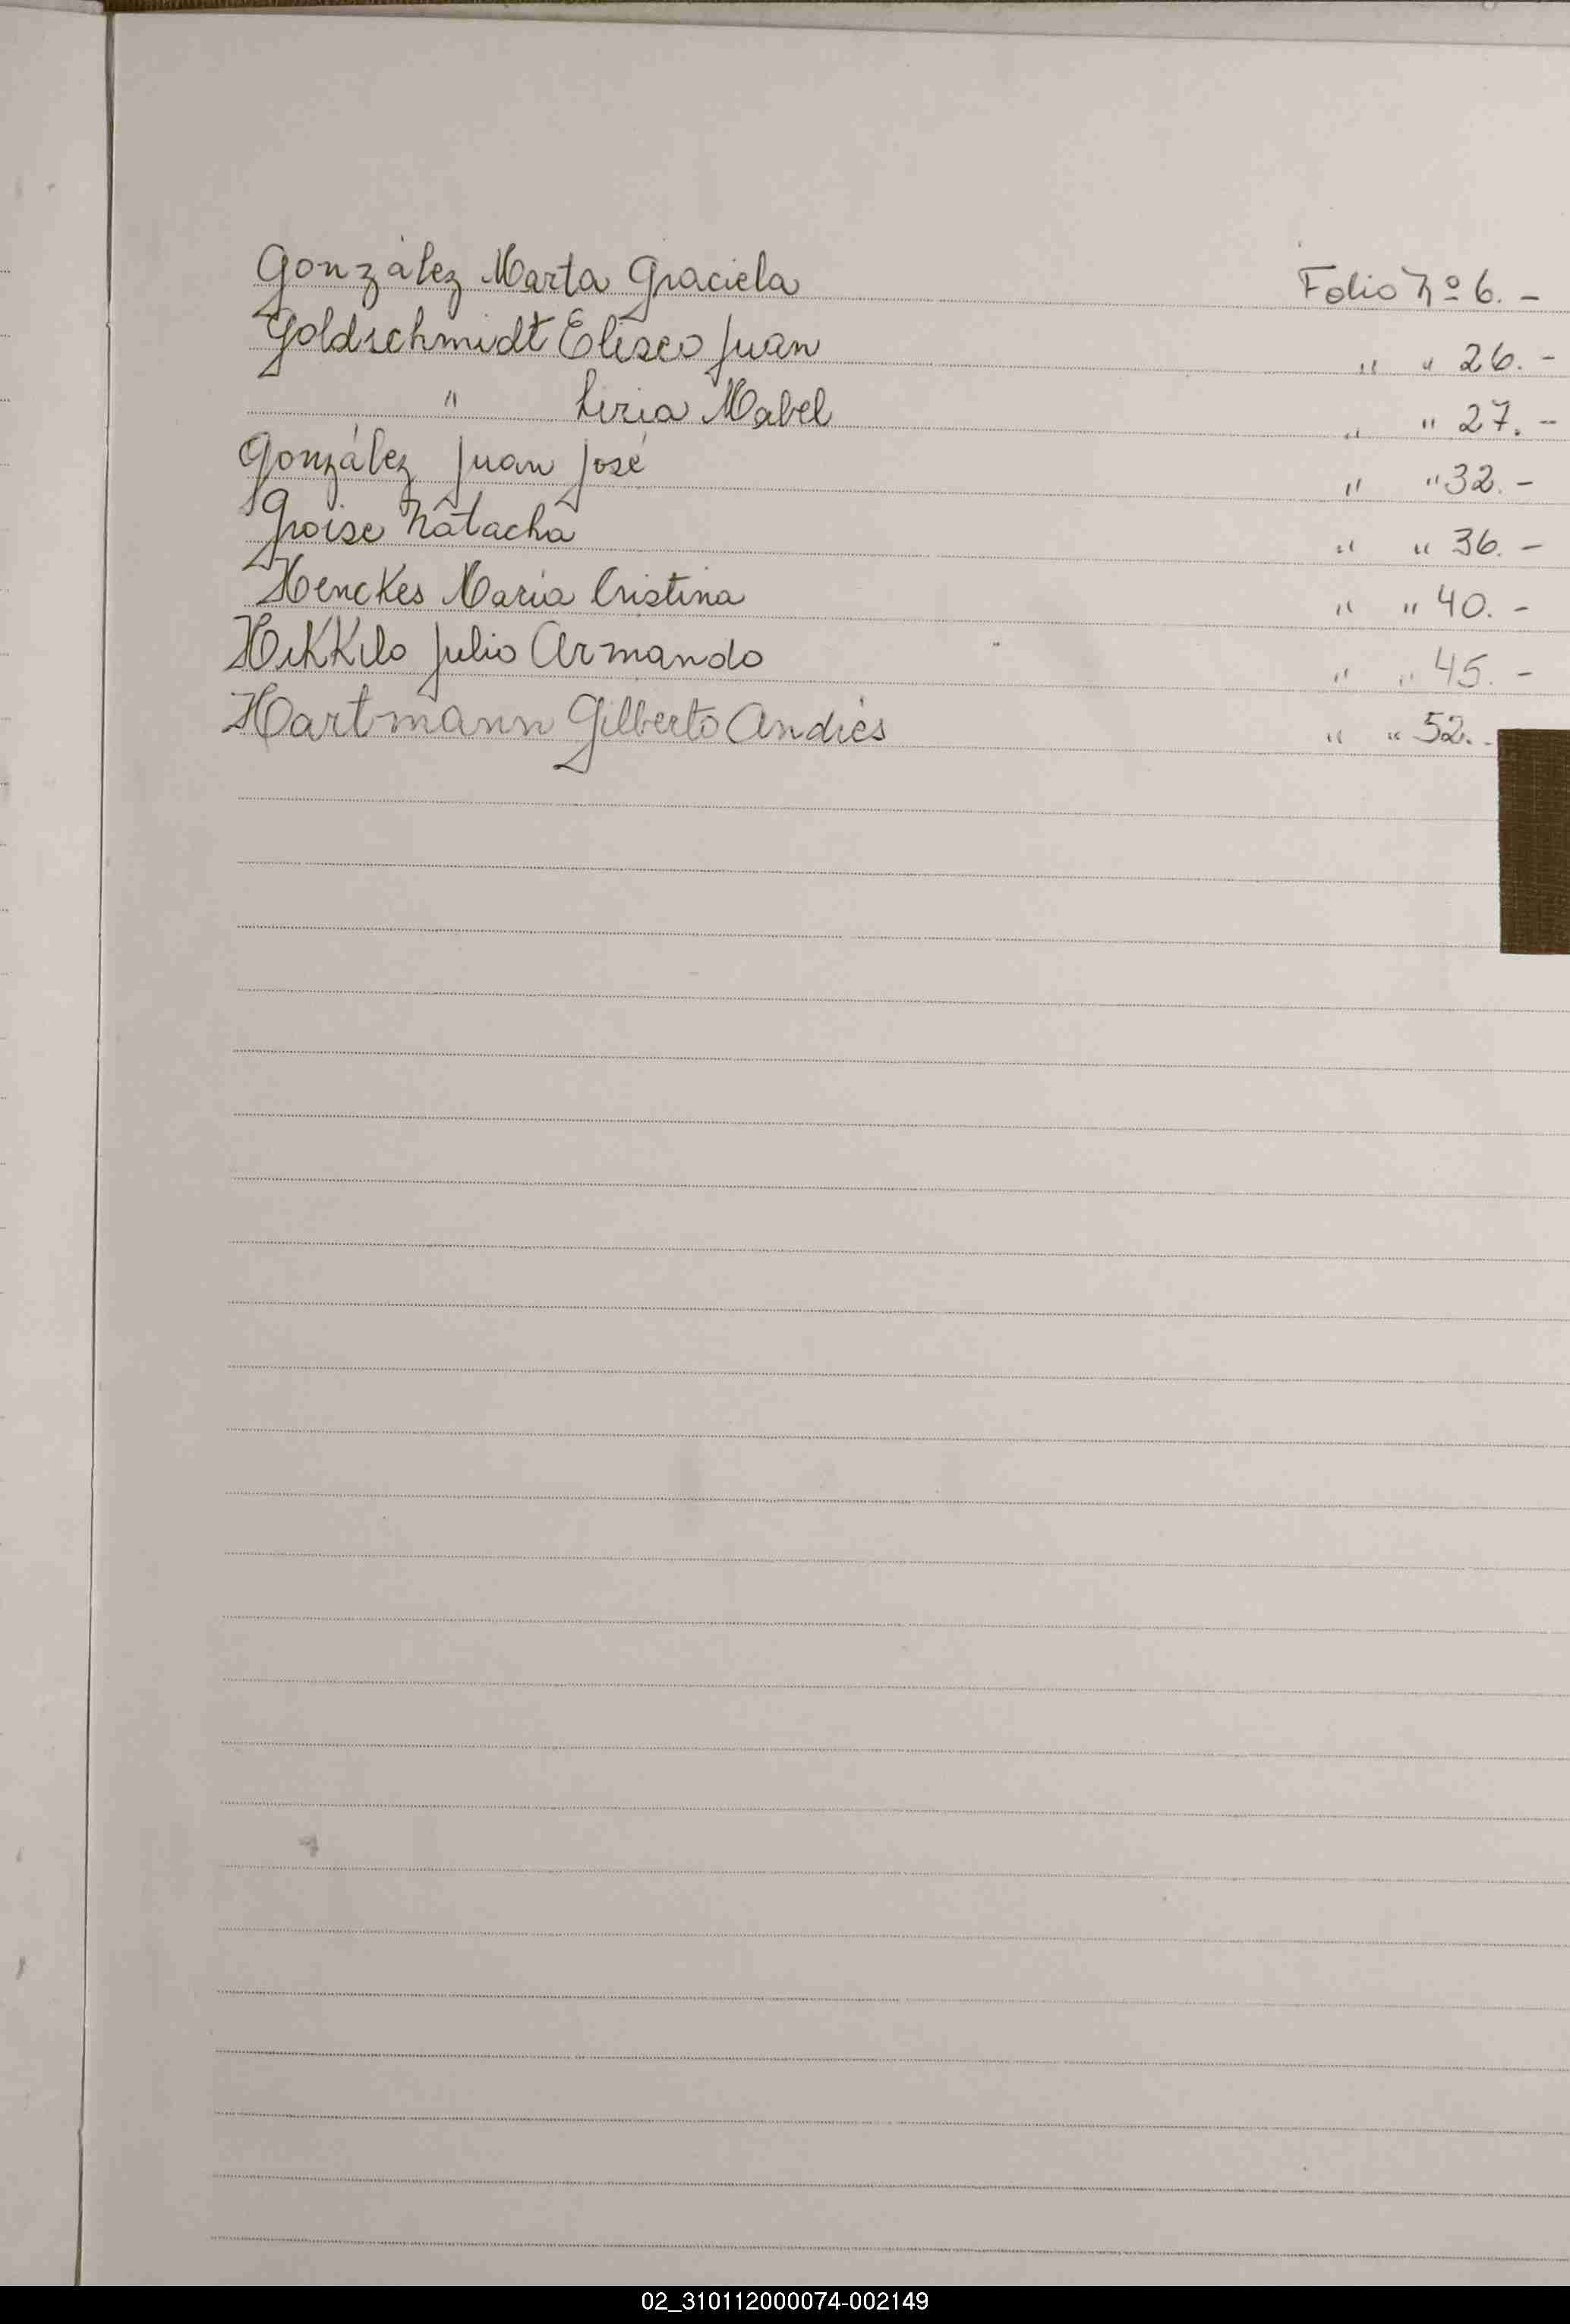 González Marta Graciela Folio Nº 6. -
Goldschmidt Eliseo Juan " " 26. -
" Liria Mabel " " 27. -
González Juan José " " 32. -
Groise Natacha " " 36. -
Henckes María Cristina " " 40. -
Hikkilo Julio Armando " " 45. -
Hartmann Gilberto Andrés " " 52. -
02_310112000074-002149